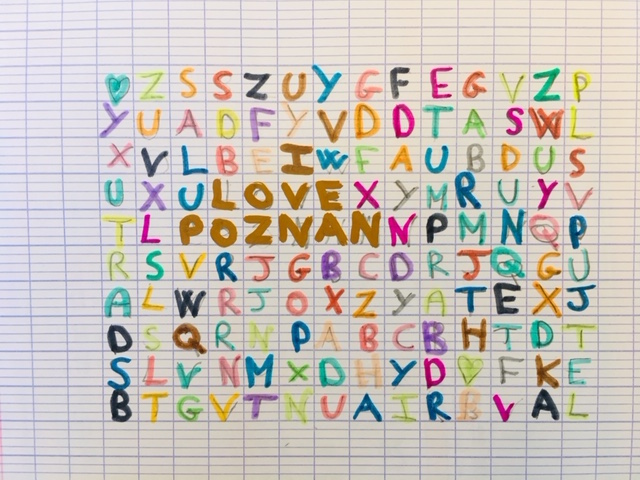 ♥ Z S S Z U Y G F E G V Z P
Y U A D F Y V D D T A S W L
X V L B E I W F A U B D U S
U X U L O V E X Y M R U Y V
T L P O Z N A N N P M N Q P
R S V R J G B C D R J Q G U
A L W R J O X Z Y A T E X J
D S Q R N P A B C B H T D T
S L V N M X D H Y D ♥ F K E
B T G V T N U A I R B V A L